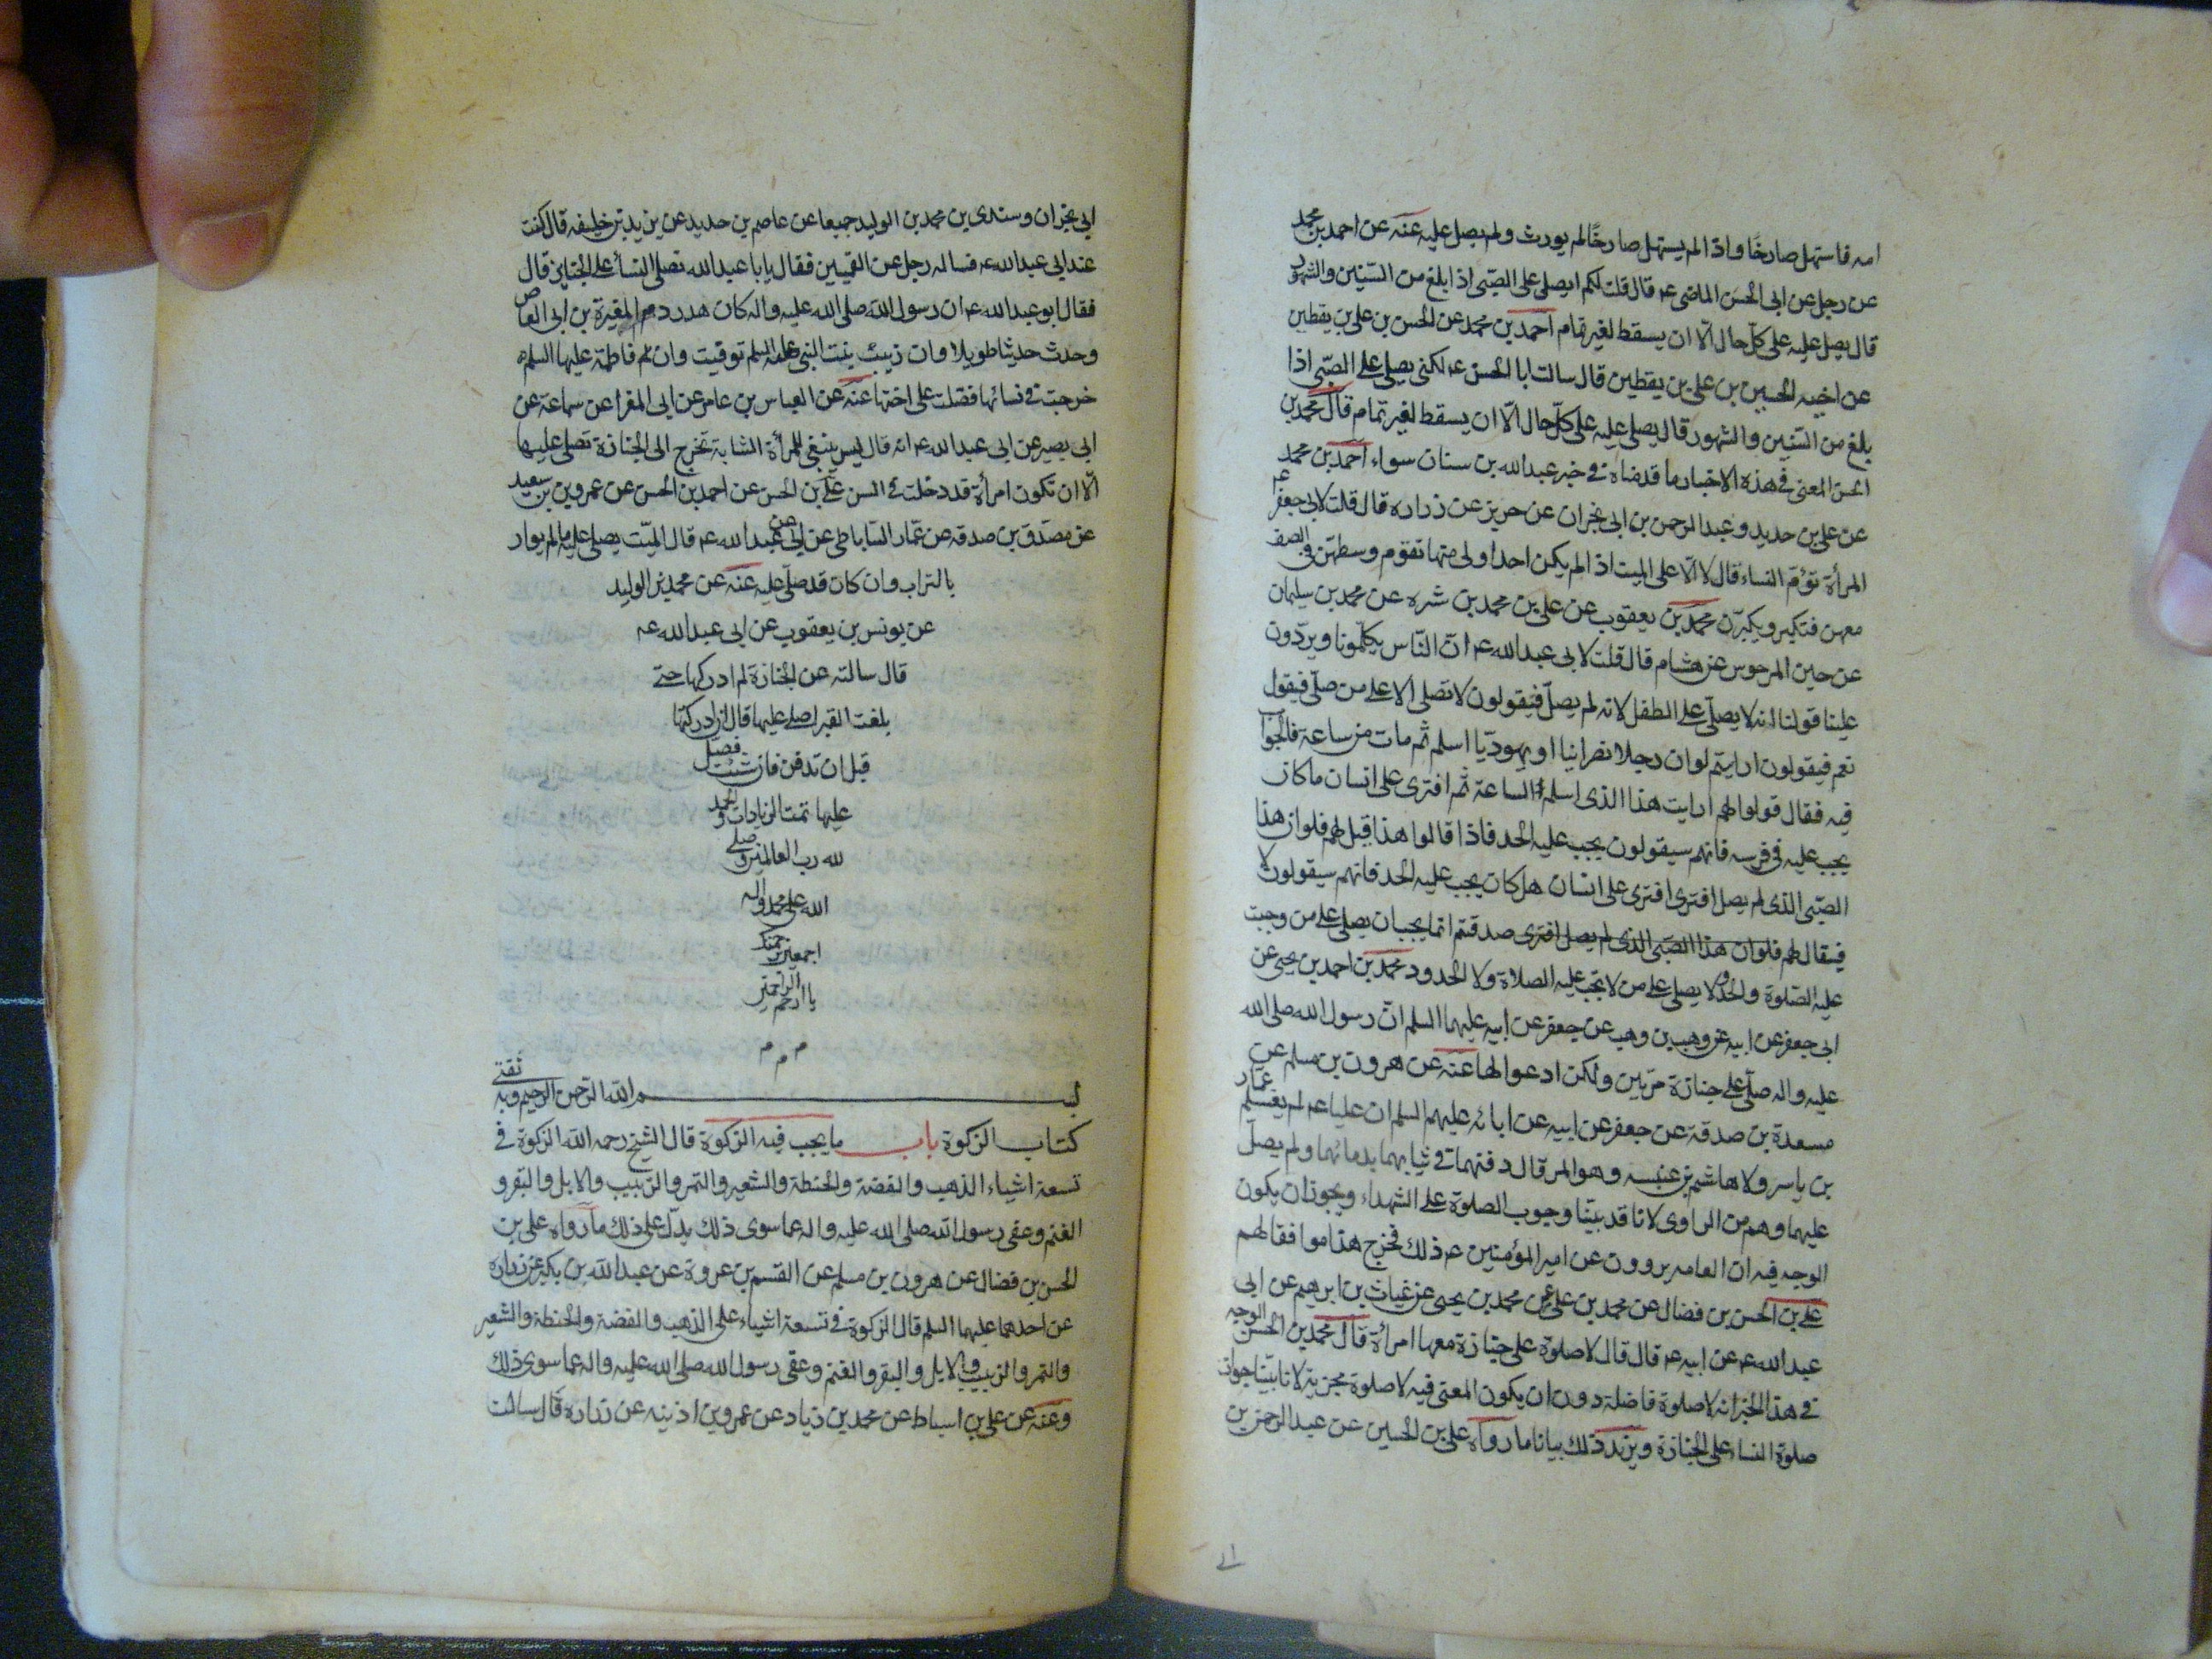 امه فاستهل صارخًا واذا لم يستهل صارخًا لم يورث ولم يصل عليه عنه عن احمد بن محمد
عن رجل عن ابى الحسن الماضى ع‍ قال قلت لكم يصلى على الصّبى اذا بلغ من السّنين والشهور
قال يصلى عليه على كلّ حال الّا ان يسقط لغير تمام احمد بن محمد عن الحسن بن على بن يقطين
عن اخيه الحسين بن على بن يقطين قال سالت ابا الحسن ع‍ لكم يصلى على الصّبى اذا
بلغ من السّنين والشهور قال يصلى عليه على كلّ حال الّا ان يسقط لغير تمام قال محمد بن
الحسن المعنى فى هذه الاخبار ما قدمناه فى خبر عبد الله بن سنان سواء احمد بن محمد
عن على بن حديد وعبد الرحمن بن ابى نجران عن حريز عن زراره قال قلت لابى جعفر ع‍
المرأة تؤم النساء قال لا الّا على الميت اذا لم يكن احد اولى منها تقوم وسطهنّ فى الصف
معهن فتكبر ويكبرن محمد بن يعقوب عن على بن محمد بن شره عن محمد بن سليمان
عن حين المرجوس عن هشام قال قلت لابى عبد الله ع‍ انّ النّاس يكلّمونا ويردّون
علينا قولنا انه لا يصلّى على الطفل لانه لم يصلّ فيقولون لا تصلى الا على من صلّى فيقول
نعم فيقولون ارايتم لو ان رجلا نصرانيا او يهوديّا اسلم ثم مات من ساعة فما الجواب
فيه فقال قولوا لهم ارايت هذا الذى اسلم الساعة ثم افترى على انسان ما كان
يجب عليه فى فريه فانهم سيقولون يجب عليه الحد فاذا قالوا هذا قيل لهم فلو ان هذا
الصّبى الذى لم يصل افترى افترى على انسان هل كان يجب عليه الحد فانهم سيقولون لا
فيقال لهم فلو ان هذا الصّبى الذى لم يصل افترى صدقتم انما يجب ان يصلى على من وجبت
عليه الصّلوة والحدود ولا يصلى على من لا تجب عليه الصلاة ولا الحدود محمد بن احمد بن يحيى عن
ابى جعفر عن ابيه عن وهب بن وهب عن جعفر عن ابيه عليهما السلم انّ رسول الله صلى الله
عليه واله صلّى على جنازة مرّتين ولكن ادعوا لها عنه عن هرون بن مسلم عن
مسعدة بن صدقة عن جعفر عن ابيه عن ابائه عليهم السلم ان عليا ع‍ لم يغسل عمار
بن ياسر ولا هاشم بن عتبه وهو المرقال دفنهما فى ثيابهما بدمائهما ولم يصلّ
عليهما وهم من الراوى لانا قد بيّنا وجوب الصلوة على الشهداء ويجوز ان يكون
الوجه فيه ان العامه يروون عن امير المؤمنين ع‍ ذلك فخرج هذا موافقا لهم
على بن الحسن بن فضال عن محمد بن على عن محمد بن يحيى عن غياث بن ابرهيم عن ابى
عبد الله ع‍ عن ابيه ع‍ قال قال لا صلوة على جنازة معها امرأة قال محمد بن الحسن الوجه
فى هذا الخبر انه لا صلوة فاضلة دون ان يكون المعنى فيه لا صلوة مجزية لانا بيّنا جواز
صلوة النساء على الجنازة ويزيد ذلك بيانا ما رواه على بن الحسين عن عبد الرحمن بن
ابى نجران وسندى بن محمد بن الوليد جميعا عن عاصم بن حديد عن يزيد بن خليفه قال كنت
عند ابى عبد الله ع‍ فساله رجل عن القميين فقال يابا عبد الله تصلى النساء على الجنايز قال
فقال ابو عبد الله ع‍ ان رسول الله صلى الله عليه واله كان هدر دم المغيرة بن ابى العاص
وحدث حديثا طويلا وان زينب بنت النبى عليه السلم توفيت وان فاطمة عليها السلم
خرجت فى نسائها فصلت على اختها عنه عن العباس بن عامر عن ابى المغرا عن سماعة عن
ابى بصير عن ابى عبد الله ع‍ انه قال ليس ينبغى للمرأة الشابة تخرج الى الجنازة تصلى عليها
الّا ان تكون امرأة قد دخلت فى السن على بن الحسن عن احمد بن الحسن عن عمرو بن سعيد
عن مصدّق بن صدقه عن عمّار السّاباطى عن ابى عبد الله ع‍ قال الميّت يصلى عليه ما لم يوار
بالتراب وان كان قد صلّى عليه عنه عن محمد بن الوليد
عن يونس بن يعقوب عن ابى عبد الله ع‍
قال سالته عن الجنازة لم ادركها حتى
بلغت القبر اصلى عليها قال ان ادركتها
قبل ان تدفن فان شئت فصلّ
عليها تمت الزيادات والحمد
لله رب العالمين وصلى
الله على محمد واله
اجمعين برحمتك
يا ارحم الراحمين
م م م
بسم الله الرّحمن الرحيم وبه ثقتى
كتاب الزكوة باب ما يجب فيه الزكوة قال الشيخ رحمه الله الزكوة فى
تسعة اشياء الذهب والفضة والحنطة والشعير والتمر والزبيب والابل والبقر و
الغنم وعفى رسول الله صلى الله عليه واله عما سوى ذلك يدلّ على ذلك ما رواه على بن
الحسن بن فضال عن هرون بن مسلم عن القسم بن عروة عن عبد الله بن بكير عن زراره
عن احدهما عليهما السلم قال الزكوة فى تسعة اشياء على الذهب والفضة والحنطة والشعير
والتمر والزبيب والابل والبقر والغنم وعفى رسول الله صلى الله عليه واله عما سوى ذلك
وعنه عن على بن اسباط عن محمد بن زياد عن عمرو بن اذينه عن زراره قال سالت